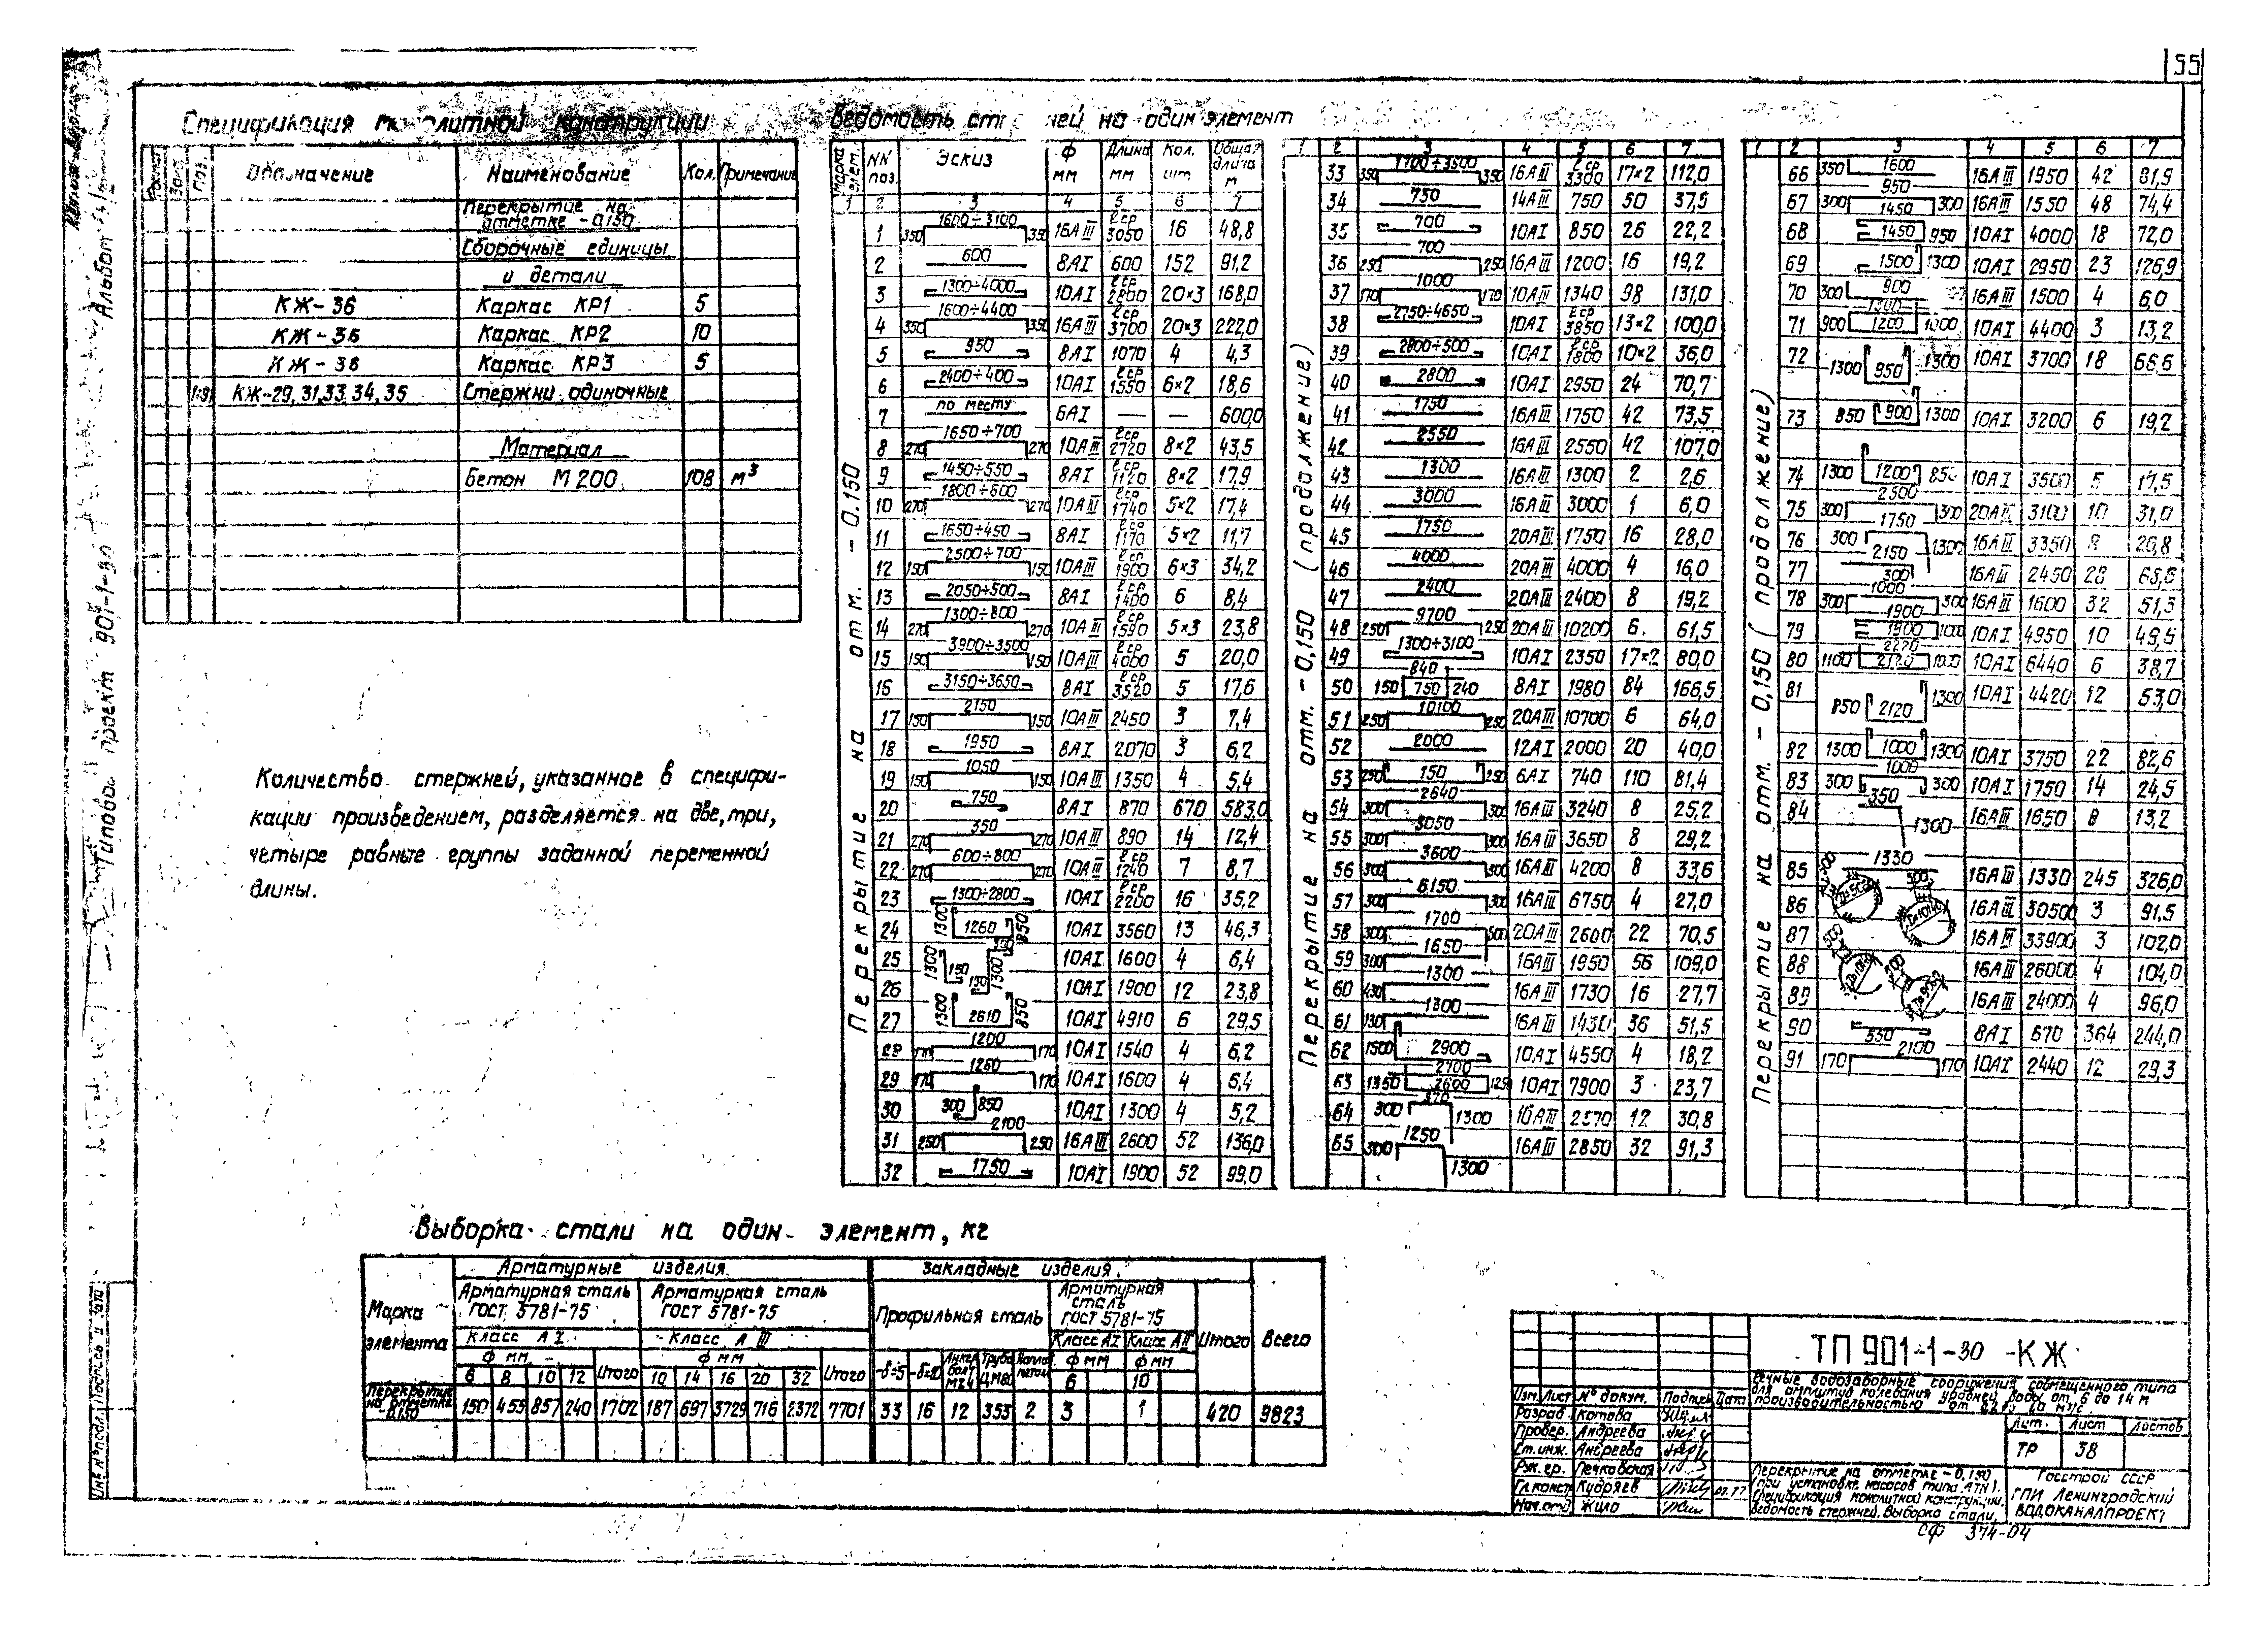 55
Альбом
Типовой проект 901-1-30
Спецификация монолитной конструкции
Поз. Обозначение Наименование Кол. Примечание
Перекрытие на
отметке -0.150
Сборочные единицы
и детали
КЖ-36 Каркас КР1 5
КЖ-36 Каркас КР2 10
КЖ-36 Каркас КР3 5
1÷91 КЖ-29,31,33,34,35 Стержни одиночные
Материал
Бетон М200 108 м³
Количество стержней, указанное в специфи-
кации произведением, разделяется на две, три,
четыре равные группы заданной переменной
длины.
Ведомость стержней на один элемент
Марка элем. NN поз. Эскиз Ф мм Длина мм Кол. шт. Общая длина м
1 2 3 4 5 6 7
Перекрытие на отм. -0.150
1 350 1600÷3100 350 16АIII ℓср 3050 16 48,8
2 600 8АI 600 152 91,2
3 1300÷4000 10АI ℓср 2800 20×3 168,0
4 350 1600÷4400 350 16АIII ℓср 3700 20×3 222,0
5 950 8АI 1070 4 4,3
6 2400÷400 10АI ℓср 1550 6×2 18,6
7 по месту 6АI — — 600,0
8 270 1650÷700 270 10АIII ℓср 2720 8×2 43,5
9 1450÷550 8АI ℓср 1120 8×2 17,9
10 270 1800÷600 270 10АIII ℓср 1740 5×2 17,4
11 1650÷450 8АI ℓср 1170 5×2 11,7
12 150 2500÷700 150 10АIII ℓср 1900 6×3 34,2
13 2050÷500 8АI ℓср 1400 6 8,4
14 270 1300÷800 270 10АIII ℓср 1590 5×3 23,8
15 150 3900÷3500 150 10АIII ℓср 4000 5 20,0
16 3150÷3650 8АI ℓср 3520 5 17,6
17 150 2150 150 10АIII 2450 3 7,4
18 1950 8АI 2070 3 6,2
19 150 1050 150 10АIII 1350 4 5,4
20 750 8АI 870 670 583,0
21 270 350 270 10АIII 890 14 12,4
22 270 600÷800 270 10АIII ℓср 1240 7 8,7
23 1300÷2800 10АI ℓср 2200 16 35,2
24 1300 1260 850 10АI 3560 13 46,3
25 1300 150 10АI 1600 4 6,4
26 150 1300 300 10АI 1900 12 23,8
27 1300 2610 850 10АI 4910 6 29,5
28 170 1200 170 10АI 1540 4 6,2
29 170 1260 170 10АI 1600 4 6,4
30 300 850 10АI 1300 4 5,2
31 250 2100 250 16АIII 2600 52 136,0
32 1750 10АI 1900 52 99,0
1 2 3 4 5 6 7
Перекрытие на отм. -0,150 (продолжение)
33 350 1700÷3500 350 16АIII ℓср 3300 17×2 112,0
34 750 14АIII 750 50 37,5
35 700 10АI 850 26 22,2
36 250 700 250 16АIII 1200 16 19,2
37 170 1000 170 10АIII 1340 98 131,0
38 2750÷4650 10АI ℓср 3850 13×2 100,0
39 2800÷500 10АI ℓср 1800 10×2 36,0
40 2800 10АI 2950 24 70,7
41 1750 16АIII 1750 42 73,5
42 2550 16АIII 2550 42 107,0
43 1300 16АIII 1300 2 2,6
44 3000 16АIII 3000 1 6,0
45 1750 20АIII 1750 16 28,0
46 4000 20АIII 4000 4 16,0
47 2400 20АIII 2400 8 19,2
48 250 9700 250 20АIII 10200 6 61,5
49 1300÷3100 10АI 2350 17×2 80,0
50 150 840 750 240 8АI 1980 84 166,5
51 250 10100 250 20АIII 10700 6 64,0
52 2000 12АI 2000 20 40,0
53 250 150 250 6АI 740 110 81,4
54 300 2640 300 16АIII 3240 8 25,2
55 300 3050 300 16АIII 3650 8 29,2
56 300 3600 300 16АIII 4200 8 33,6
57 300 6150 300 16АIII 6750 4 27,0
58 300 1700 500 20АIII 2600 22 70,5
59 300 1650 16АIII 1950 56 109,0
60 430 1300 16АIII 1730 16 27,7
61 130 1300 16АIII 1430 36 51,5
62 1500 2900 10АI 4550 4 18,2
63 1350 2700 2600 10АI 7900 3 23,7
64 300 1300 16АIII 2570 12 30,8
65 300 1250 1300 16АIII 2850 32 91,3
1 2 3 4 5 6 7
Перекрытие на отм. -0,150 (продолжение)
66 350 1600 16АIII 1950 42 81,9
67 300 950 300 16АIII 1550 48 74,4
68 1450 1450 950 10АI 4000 18 72,0
69 1500 1300 10АI 2950 23 126,9
70 300 900 16АIII 1500 4 6,0
71 900 1300 1200 1000 10АI 4400 3 13,2
72 1300 950 1300 10АI 3700 18 66,6
73 850 900 1300 10АI 3200 6 19,2
74 1300 1200 850 10АI 3500 5 17,5
75 300 2500 300 20АIII 3100 10 31,0
76 300 1750 1300 16АIII 3350 8 26,8
77 2150 300 16АIII 2450 28 68,6
78 300 1000 300 16АIII 1600 32 51,3
79 1900 1900 1000 10АI 4950 10 49,5
80 1100 2220 2120 1000 10АI 6440 6 38,7
81 850 2120 1300 10АI 4420 12 53,0
82 1300 1000 1300 10АI 3750 22 82,6
83 300 1000 300 10АI 1750 14 24,5
84 350 1300 16АIII 1650 8 13,2
85 1330 16АIII 1330 245 326,0
86 16АIII 30500 3 91,5
87 16АIII 33900 3 102,0
88 16АIII 26000 4 104,0
89 16АIII 24000 4 96,0
90 550 8АI 670 364 244,0
91 170 2100 170 10АI 2440 12 29,3
Выборка стали на один элемент, кг
Марка элемента
Арматурные изделия Закладные изделия
Арматурная сталь ГОСТ 5781-75 Арматурная сталь ГОСТ 5781-75 Профильная сталь Арматурная сталь ГОСТ 5781-75 Итого Всего
Класс АI Класс АIII Класс АI Класс АII
Ф мм Ф мм Ф мм Ф мм
6 8 10 12 Итого 10 14 16 20 32 Итого -δ=5 -δ=10 Анкер болт М24 Труба ЦМ80 6 10
Перекрытие на отметке -0.150 150 455 857 240 1702 187 697 3729 716 2372 7701 33 16 12 353 2 3 1 420 9823
ТП 901-1-30 -КЖ
Речные водозаборные сооружения совмещенного типа
для амплитуд колебания уровней воды от 6 до 14 м
производительностью от
Изм. Лист № докум. Подпись Дата
Разраб. Котова
Провер. Андреева
Ст.инж. Андреева
Рук.гр. Печковская
Гл.конст. Кудряев
Нач.отд. Жило
Лит. Лист Листов
ТР 38
Перекрытие на отметке -0,150
(при установке насосов типа АТН).
Спецификация монолитной конструкции.
Ведомость стержней. Выборка стали.
Госстрой СССР
ГПИ Ленинградский
ВОДОКАНАЛПРОЕКТ
СФ 374-04